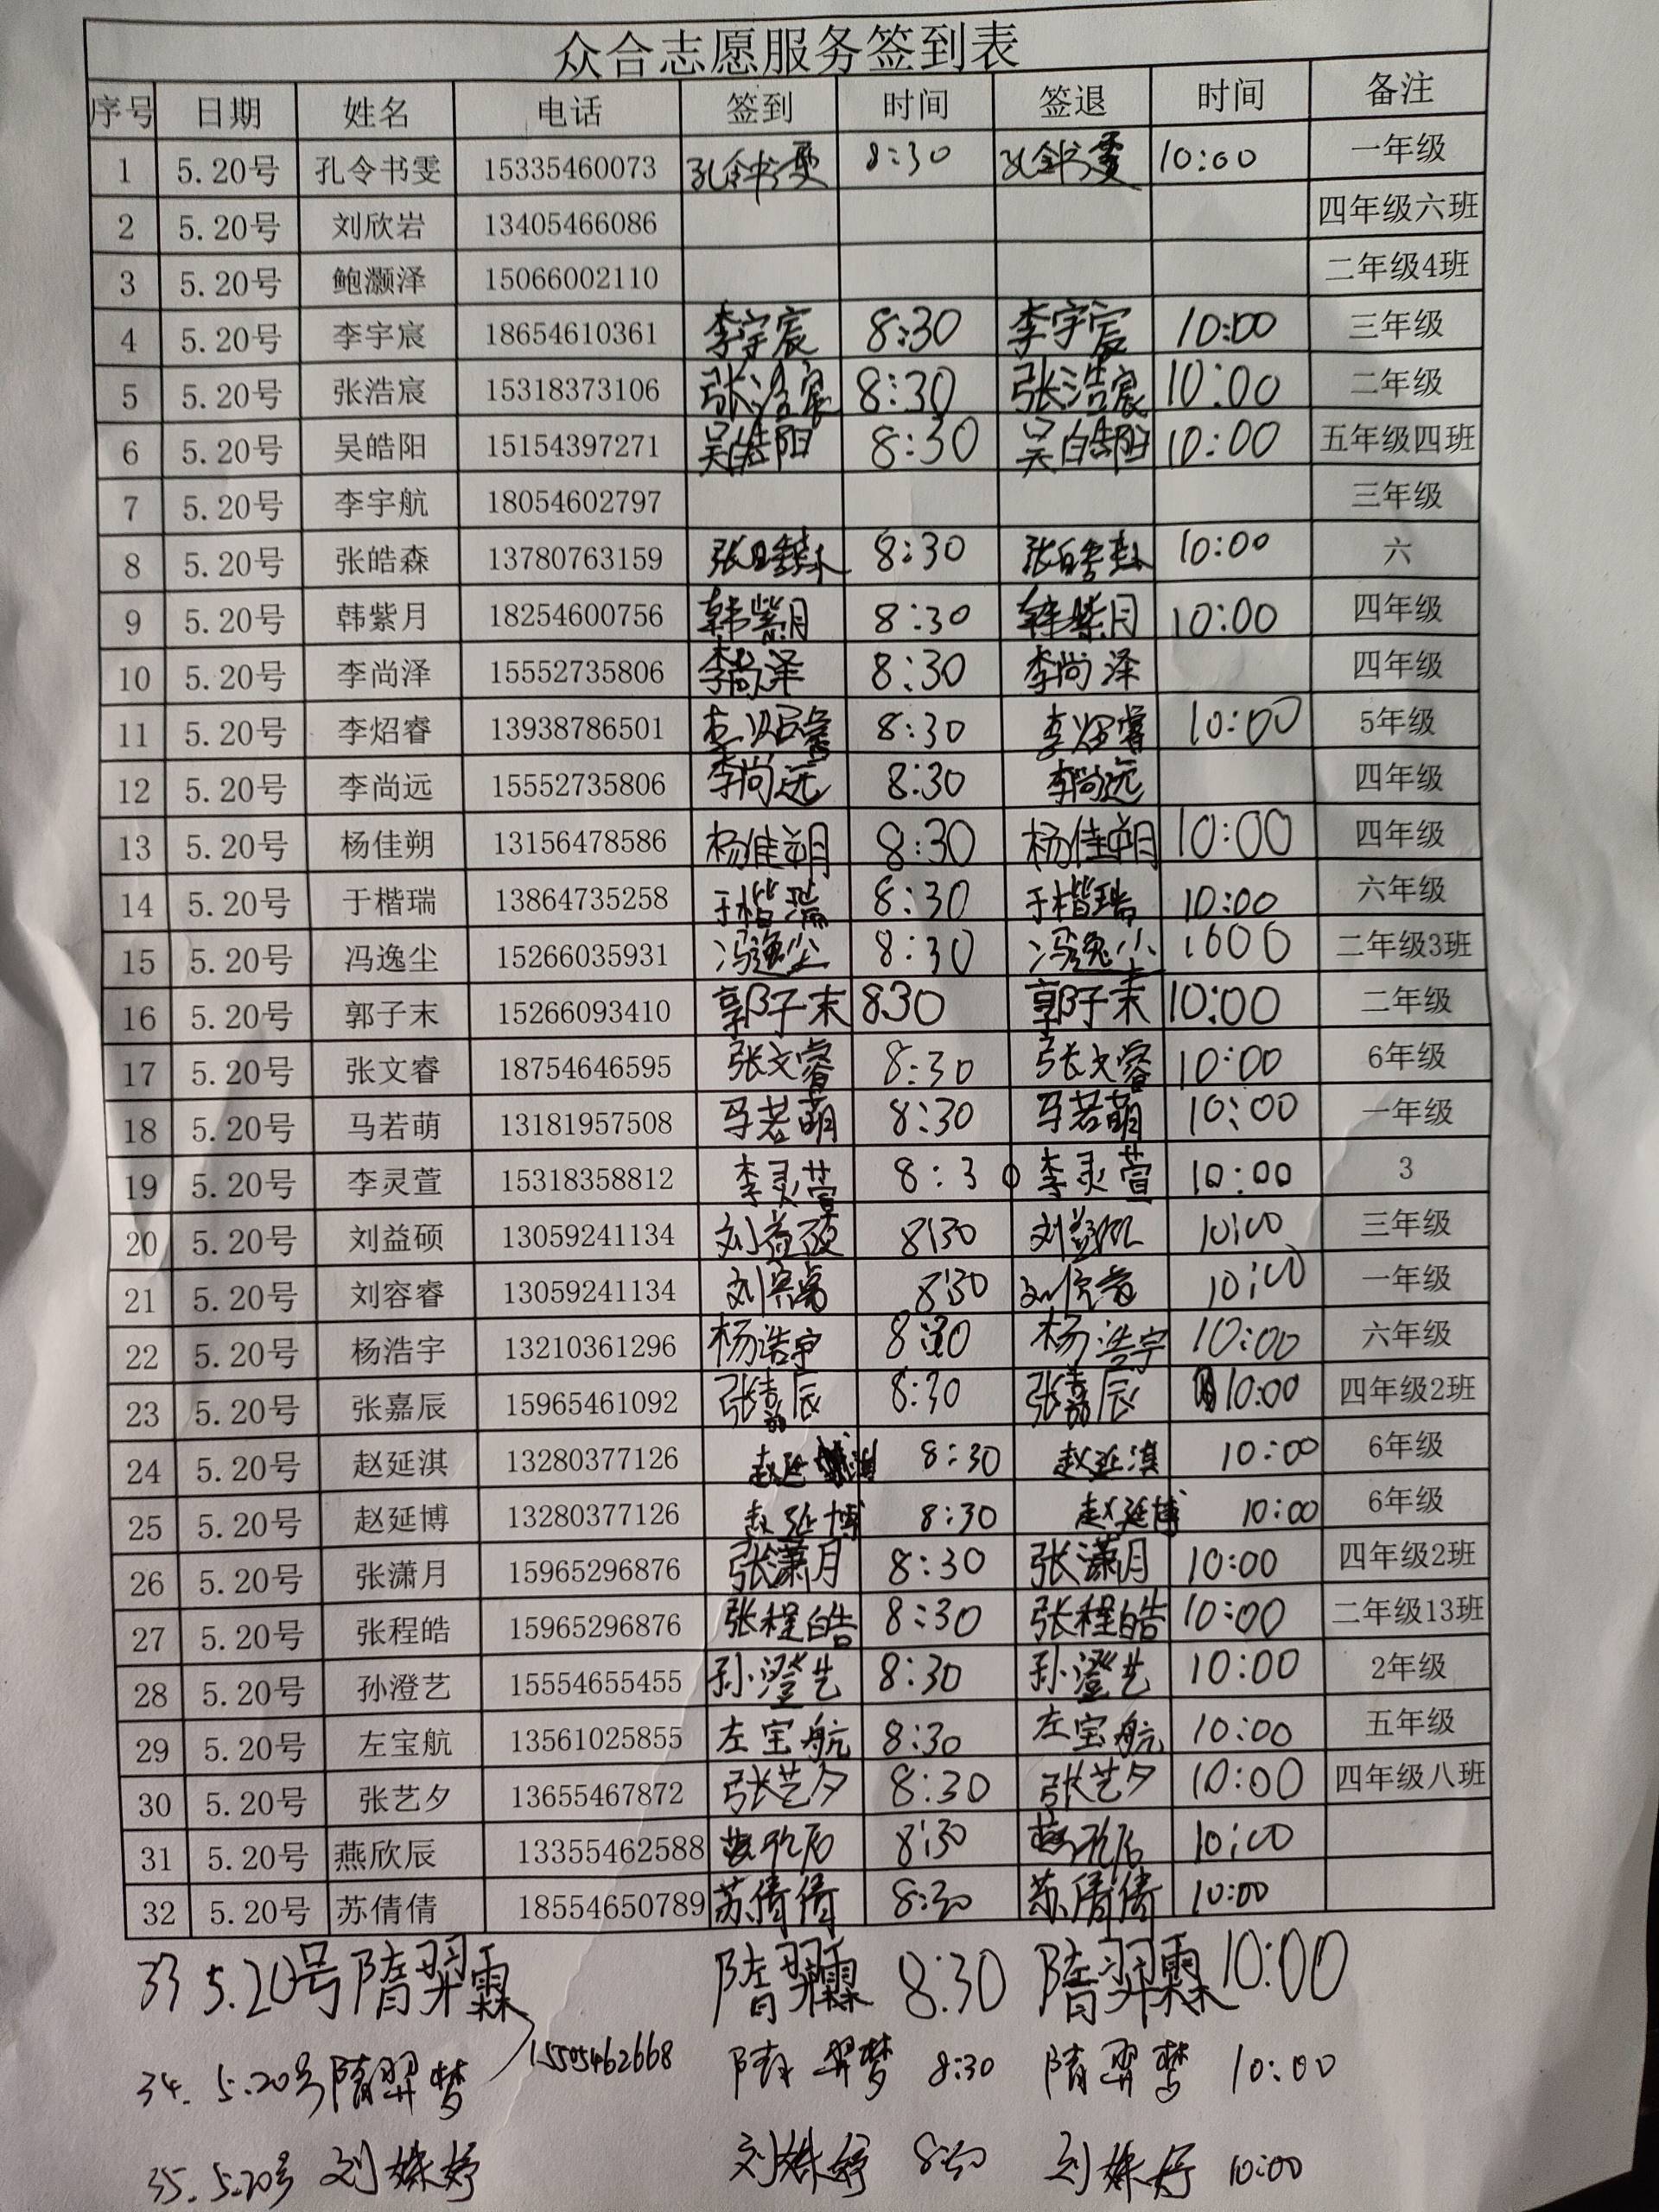 众合志愿服务签到表
序号 日期 姓名 电话 签到 时间 签退 时间 备注
1 5.20号 孔令书雯 15335460073 孔令书雯 8:30 孔令书雯 10:00 一年级
2 5.20号 刘欣岩 13405466086 四年级六班
3 5.20号 鲍灏泽 15066002110 二年级4班
4 5.20号 李宇宸 18654610361 李宇宸 8:30 李宇宸 10:00 三年级
5 5.20号 张浩宸 15318373106 张浩宸 8:30 张浩宸 10:00 二年级
6 5.20号 吴皓阳 15154397271 吴皓阳 8:30 吴皓阳 10:00 五年级四班
7 5.20号 李宇航 18054602797 三年级
8 5.20号 张皓森 13780763159 张皓森 8:30 张皓森 10:00 六
9 5.20号 韩紫月 18254600756 韩紫月 8:30 韩紫月 10:00 四年级
10 5.20号 李尚泽 15552735806 李尚泽 8:30 李尚泽 四年级
11 5.20号 李炤睿 13938786501 李炤睿 8:30 李炤睿 10:00 5年级
12 5.20号 李尚远 15552735806 李尚远 8:30 李尚远 四年级
13 5.20号 杨佳朔 13156478586 杨佳朔 8:30 杨佳朔 10:00 四年级
14 5.20号 于楷瑞 13864735258 于楷瑞 8:30 于楷瑞 10:00 六年级
15 5.20号 冯逸尘 15266035931 冯逸尘 8:30 冯逸尘 1000 二年级3班
16 5.20号 郭子末 15266093410 郭子末 830 郭子末 10:00 二年级
17 5.20号 张文睿 18754646595 张文睿 8:30 张文睿 10:00 6年级
18 5.20号 马若萌 13181957508 马若萌 8:30 马若萌 10:00 一年级
19 5.20号 李灵萱 15318358812 李灵萱 8:30 李灵萱 10:00 3
20 5.20号 刘益硕 13059241134 刘益硕 8:30 刘益硕 10:00 三年级
21 5.20号 刘容睿 13059241134 刘容睿 8:30 刘容睿 10:00 一年级
22 5.20号 杨浩宇 13210361296 杨浩宇 8:30 杨浩宇 10:00 六年级
23 5.20号 张嘉辰 15965461092 张嘉辰 8:30 张嘉辰 10:00 四年级2班
24 5.20号 赵延淇 13280377126 赵延淇 8:30 赵延淇 10:00 6年级
25 5.20号 赵延博 13280377126 赵延博 8:30 赵延博 10:00 6年级
26 5.20号 张潇月 15965296876 张潇月 8:30 张潇月 10:00 四年级2班
27 5.20号 张程皓 15965296876 张程皓 8:30 张程皓 10:00 二年级13班
28 5.20号 孙澄艺 15554655455 孙澄艺 8:30 孙澄艺 10:00 2年级
29 5.20号 左宝航 13561025855 左宝航 8:30 左宝航 10:00 五年级
30 5.20号 张艺夕 13655467872 张艺夕 8:30 张艺夕 10:00 四年级八班
31 5.20号 燕欣辰 13355462588 燕欣辰 8:30 燕欣辰 10:00
32 5.20号 苏倩倩 18554650789 苏倩倩 8:30 苏倩倩 10:00
33 5.20号 隋羿霖 隋羿霖 8:30 隋羿霖 10:00
34. 5.20号 隋羿梦 15505462668 隋羿梦 8:30 隋羿梦 10:00
35. 5.20号 刘姝妤 刘姝妤 8:30 刘姝妤 10:00